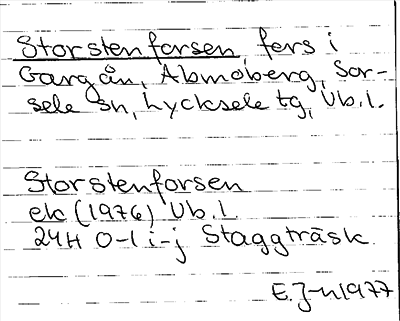 Storstenforsen, fors i
Gargån, Abmoberg, Sor-
sele sn, Lycksele tg, Vb.l.
Storstenforsen
ek (1976) Vb.l.
24H 0-1 i-j Staggträsk.
E.J-n 1977